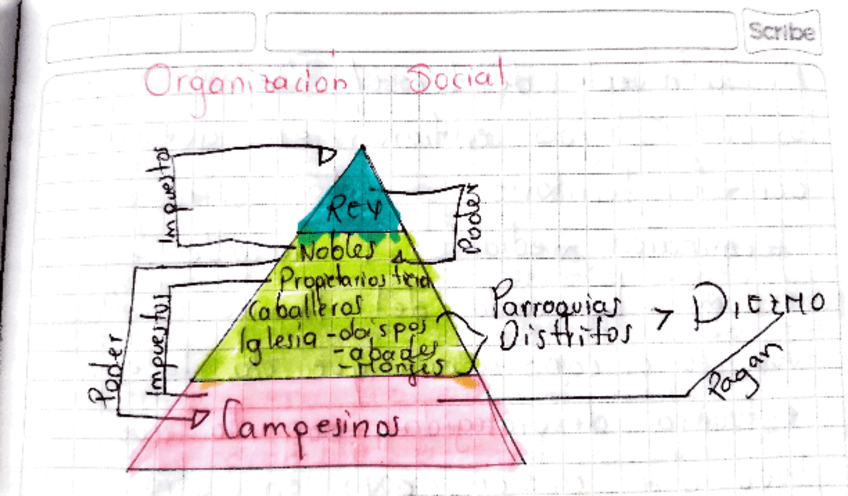 Scribe
Organización Social
Impuestos
Rey
Poder
Nobles
Propietarios
Caballeros
Iglesia - obispos
- abades
- Monjes
Parroquias
Distritos > DIEZMO
Pagan
Poder
Impuestos
Campesinos